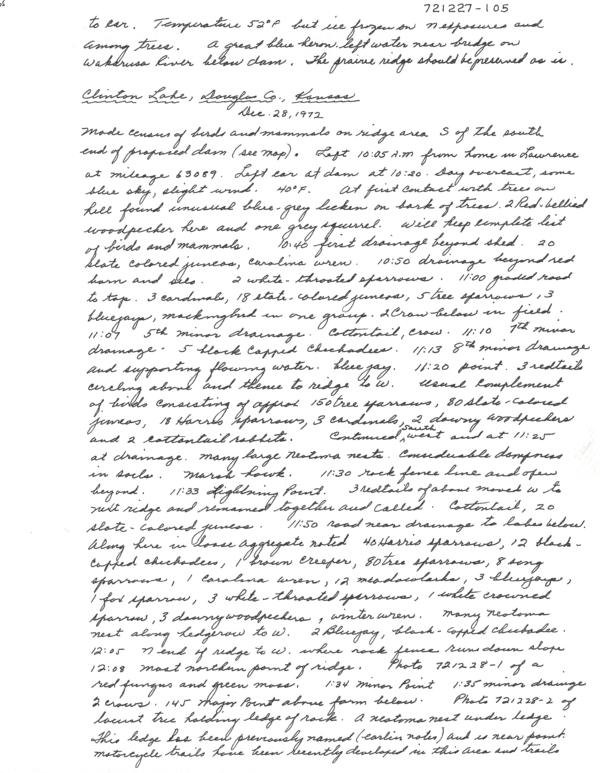 721227-105
to car. Temperature 52°F but ice frozen on N exposures and
among trees. A great blue heron left water near bridge on
Wakarusa River below dam. The prairie ridge should be preserved as is.
Clinton Lake, Douglas Co., Kansas
Dec. 28, 1972
Made census of birds and mammals on ridge area S of the south
end of proposed dam (see map). Left 10:05 A.M from home in Lawrence
at mileage 63089. Left car at dam at 10:20. Day overcast, some
blue sky, slight wind. 40°F. At first contact with trees on
hill found unusual blue-grey lichen on bark of trees. 2 Red-bellied
woodpecker here and one grey squirrel. Will keep complete list
of birds and mammals. 10:40 first drainage beyond shed. 20
slate colored juncos, Carolina wren. 10:50 drainage beyond red
barn and silo. 2 white-throated sparrows. 11:00 graded road
to top. 3 cardinals, 18 slate-colored juncos, 5 tree sparrows, 3
bluejays, mockingbird in one group. 2 Crow below in field.
11:07 5th minor drainage. Cottontail, crow. 11:10 7th minor
drainage - 5 black capped chickadees. 11:13 8th minor drainage
and supporting flowing water. bluejay. 11:20 point. 3 redtails
circling above and thence to ridge to W. Usual complement
of birds consisting of approx 150 tree sparrows, 80 slate-colored
juncos, 18 Harris sparrows, 3 cardinals, 2 downy woodpeckers
and 2 cottontail rabbits. Continued south west and at 11:25
at drainage. Many large Neotoma nests. Considerable dampness
in soils. Marsh hawk. 11:30 rock fence line and open
beyond. 11:33 Lightning Point. 3 redtails of above moved W to
next ridge and remained together and called. Cottontail, 20
slate-colored juncos. 11:50 road near drainage to lakes below.
Along here in loose aggregate noted 40 Harris sparrows, 12 black-
capped chickadees, 1 brown creeper, 80 tree sparrows, 8 song
sparrows, 1 Carolina wren, 12 meadowlarks, 3 bluejays,
1 fox sparrow, 3 white-throated sparrows, 1 white crowned
sparrow, 3 downy woodpeckers, winter wren. Many Neotoma
nest along hedgerow to W. 2 Bluejay, black-capped chickadee.
12:05 N end of ridge to W. where rock fence runs down slope
12:08 most northern point of ridge. Photo 721228-1 of a
red fungus and green moss. 1:34 Minor Point 1:35 minor drainage
2 crows. 1:45 Major Point above farm below. Photo 721228-2 of
locust tree holding ledge of rock. A neotoma nest under ledge.
This ledge has been previously named (earlier notes) and is near point.
Motorcycle trails have been recently developed in this area and trails